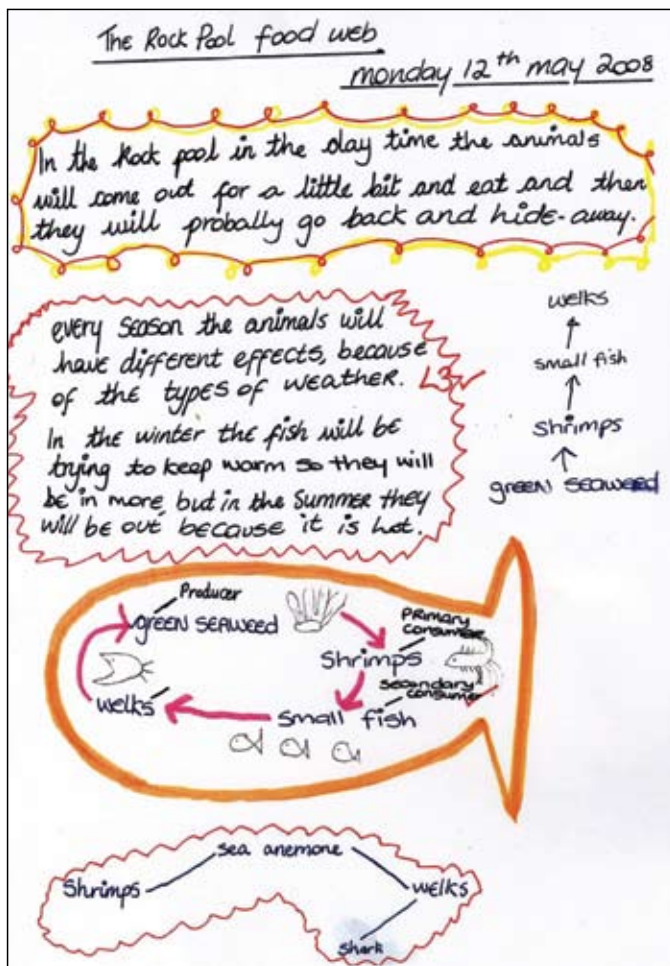 The Rock Pool food web
monday 12th may 2008
In the Rock pool in the day time the animals
will come out for a little bit and eat and then
they will probally go back and hide-away.
every season the animals will
have different effects, because
of the types of weather.
L3
In the winter the fish will be
trying to keep warm so they will
be in more, but in the summer they
will be out, because it is hot.
welks
small fish
Shrimps
green seaweed
Producer
green seaweed
Primary
consumer
Shrimps
secondary
consumer
welks
small fish
sea anemone
Shrimps
welks
shark